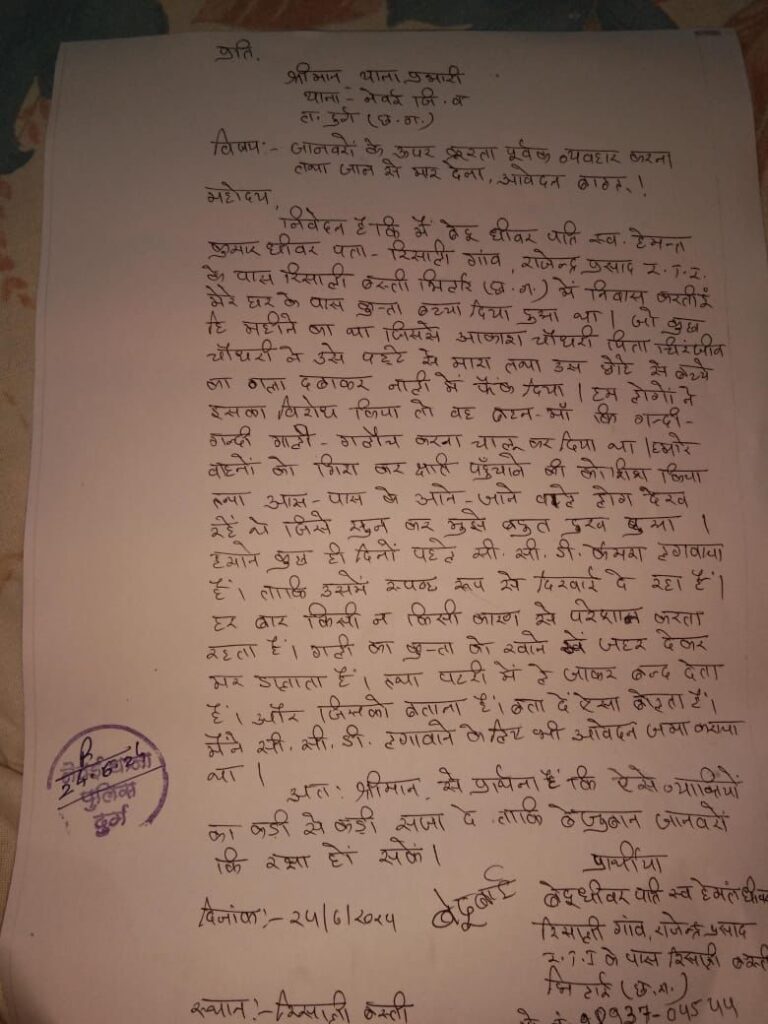 प्रति,
श्रीमान थाना प्रभारी
थाना - नेवई जि. व
ता. दुर्ग (छ.ग.)
विषय:- जानवरों के ऊपर क्रूरता पूर्वक व्यवहार करना
तथा जान से मार देना, आवेदन बाबत्.!
महोदय,
निवेदन है कि मैं बेदू धीवर पति स्व. हेमन्त
कुमार धीवर पता - रिसाली गांव, राजेन्द्र प्रसाद
के पास रिसाली बस्ती भिलाई (छ.ग.) में निवास करती हूं
मेरे घर के पास कुत्ता बच्चा दिया हुआ था। जो कुछ
हि महीने का था जिससे आकाश चौधरी पिता चिरंजीव
चौधरी ने उसे पहले से मारा तथा उस छोटे से बच्चे
का गला दबाकर नाली में फेंक दिया। हम लोगों ने
इसका विरोध किया तो वह बहन-माँ कि गन्दी-
गन्दी गाली-गलौच करना चालू कर दिया था। हमारे
को गिरा कर क्षति पहुँचाने की कोशिश किया
तथा आस-पास के आने-जाने वाले लोग देख
रहें थे जिसे सुन कर मुझे बहुत दुख हुआ।
हमने कुछ ही दिनों पहले सी. सी. डी. कैमरा लगवाया
हैं। ताकि उसमें स्पष्ट रूप से दिखाई दे रहा हैं।
हर बार किसी न किसी कारण से परेशान करता
रहता हैं। गली का कुत्ता को खाने में जहर देकर
मार डालता हैं। तथा पटरी में ले जाकर बन्द देता
हैं। और जिसको बताना हैं। बता दें ऐसा बोलता हैं।
मैंने सी. सी. डी. लगवाने के लिए भी आवेदन जमा कराया
था।
अतः श्रीमान से प्रार्थना हैं कि ऐसे व्यक्तियों
का कड़ी से कड़ी सजा दे ताकि बेजुबान जानवरों
कि रक्षा हों सकें।
पुलिस
दुर्ग
प्रार्थीया
दिनांक:- २५/६/२०२५
बेदू बाई
बेदू धीवर पति स्व हेमंत धीवर
रिसाली गांव, राजेन्द्र प्रसाद
के पास रिसाली बस्ती
भिलाई (छ.ग.)
स्थान:- रिसाली बस्ती